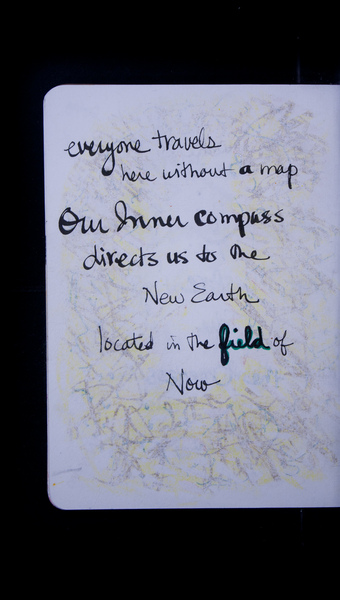 everyone travels
here without a map
Our Inner compass
directs us to the
New Earth
located in the field of
Now